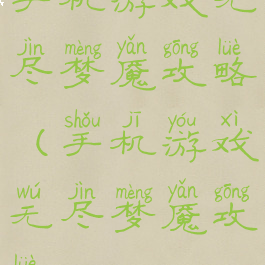 手机游戏无
jìn mèng yǎn gōng lüè
尽梦魇攻略
shǒu jī yóu xì
(手机游戏
wú jìn mèng yǎn gōng
无尽梦魇攻
lüè